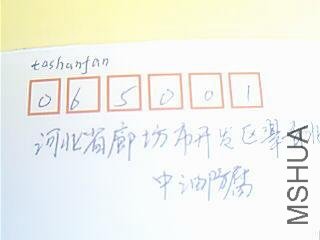 toshanfan
065001
河北省廊坊市开发区
中油防腐
MSHUA